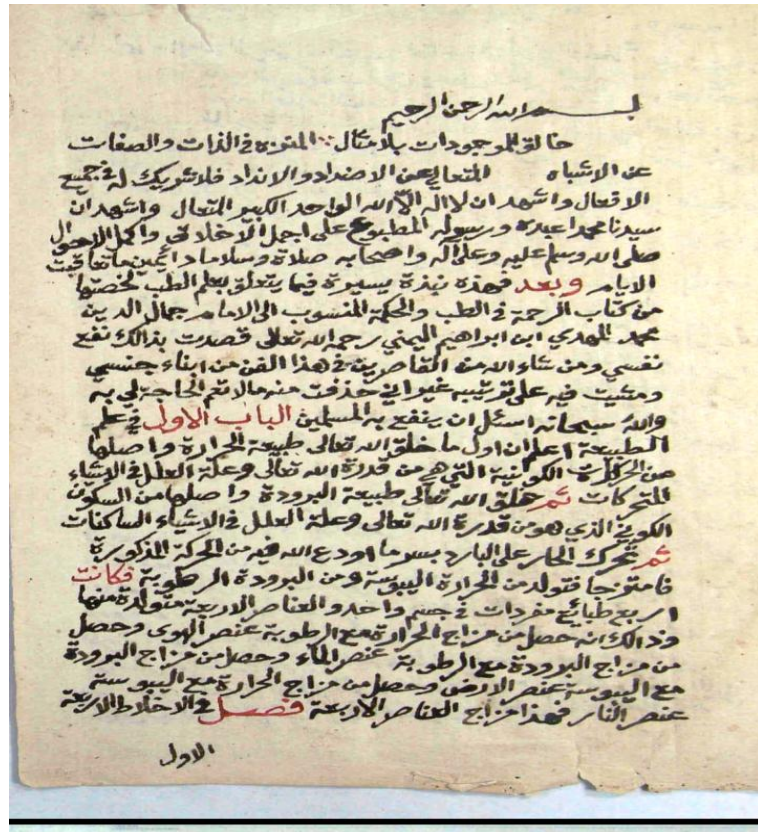 بسم الله الرحمن الرحيم
خالق الموجودات بلا مثال المنزه في الذات والصفات
عن الاشباه المتعالي عن الاضداد والانداد فلا شريك له في جميع
الافعال واشهد ان لا اله الا الله الواحد الكبير المتعال واشهد ان
سيدنا محمدا عبده ورسوله المطبوع على اجمل الاخلاق واكمل الاحوال
صلى الله وسلم عليه وعلى آله واصحابه صلاة وسلاما دائمين ما تعاقبت
الايام وبعد فهذه نبذة يسيرة فيما يتعلق بعلم الطب لخصتها
من كتاب الرحمة في الطب والحكمة المنسوب الى الامام جمال الدين
محمد المهدي ابن ابراهيم اليمني رحمه الله تعالى قصدت بذالك نفع
نفسي ومن شاء الله من القاصرين في هذا الفن من ابناء جنسي
ومشيت فيه على ترتيبه غير اني حذفت منه ما لا تعم الحاجة لي به
والله سبحانه اسئل ان ينفع به المسلمين الباب الاول في علم
الطبيعة اعلم ان اول ما خلق الله تعالى طبيعة الحرارة واصلها
من الحركات الكونية التي هي من قدرة الله تعالى وعلة العلل في الاشياء
المتحركات ثم خلق الله تعالى طبيعة البرودة واصلها من السكون
الكوني الذي هو من قدرة الله تعالى وعلة العلل في الاشياء الساكنات
ثم تحرك الحار على البارد بسر ما اودع الله فيه من الحركة المذكورة
فامتزجا فتولد من الحرارة اليبوسة ومن البرودة الرطوبة فكانت
اربع طبائع مفردات في جسم واحد والعناصر الاربعة متولدة منها
وذالك انه حصل من مزاج الحرارة مع الرطوبة عنصر الهوى وحصل
من مزاج البرودة مع الرطوبة عنصر الماء وحصل من مزاج البرودة
مع اليبوسة عنصر الارض وحصل من مزاج الحرارة مع اليبوسة
عنصر النار فهذا مزاج العناصر الاربعة فصل في الاخلاط الاربعة
الاول